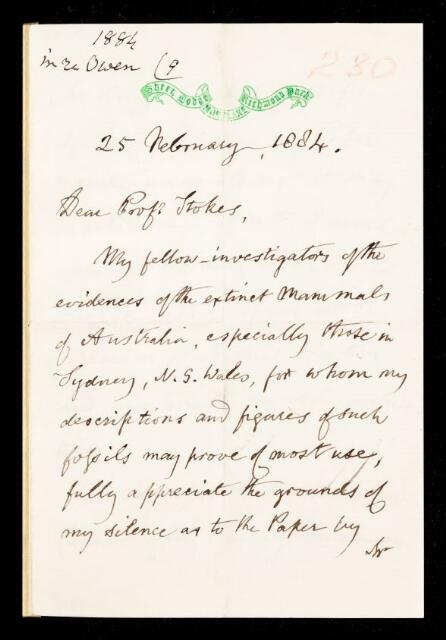 1884
in re Owen (9
230
Sheen Lodge Richmond Park
25 February, 1884.
Dear Profr. Stokes,
My fellow-investigators of the
evidences of the extinct Mammals
of Australia, especially those in
Sydney, N.S. Wales, for whom my
descriptions and figures of such
fossils may prove of most use,
fully appreciate the grounds of
my silence as to the Paper by
Dr